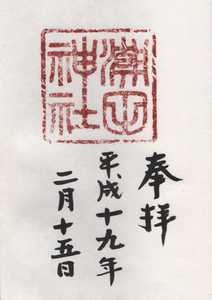 奉拝
神社
平成十九年
二月十五日